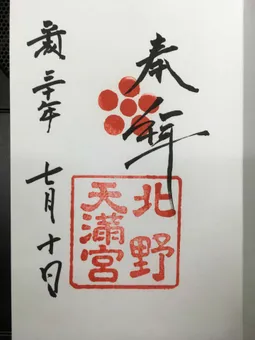 奉拝
北野
天満宮
二十年
七月十日